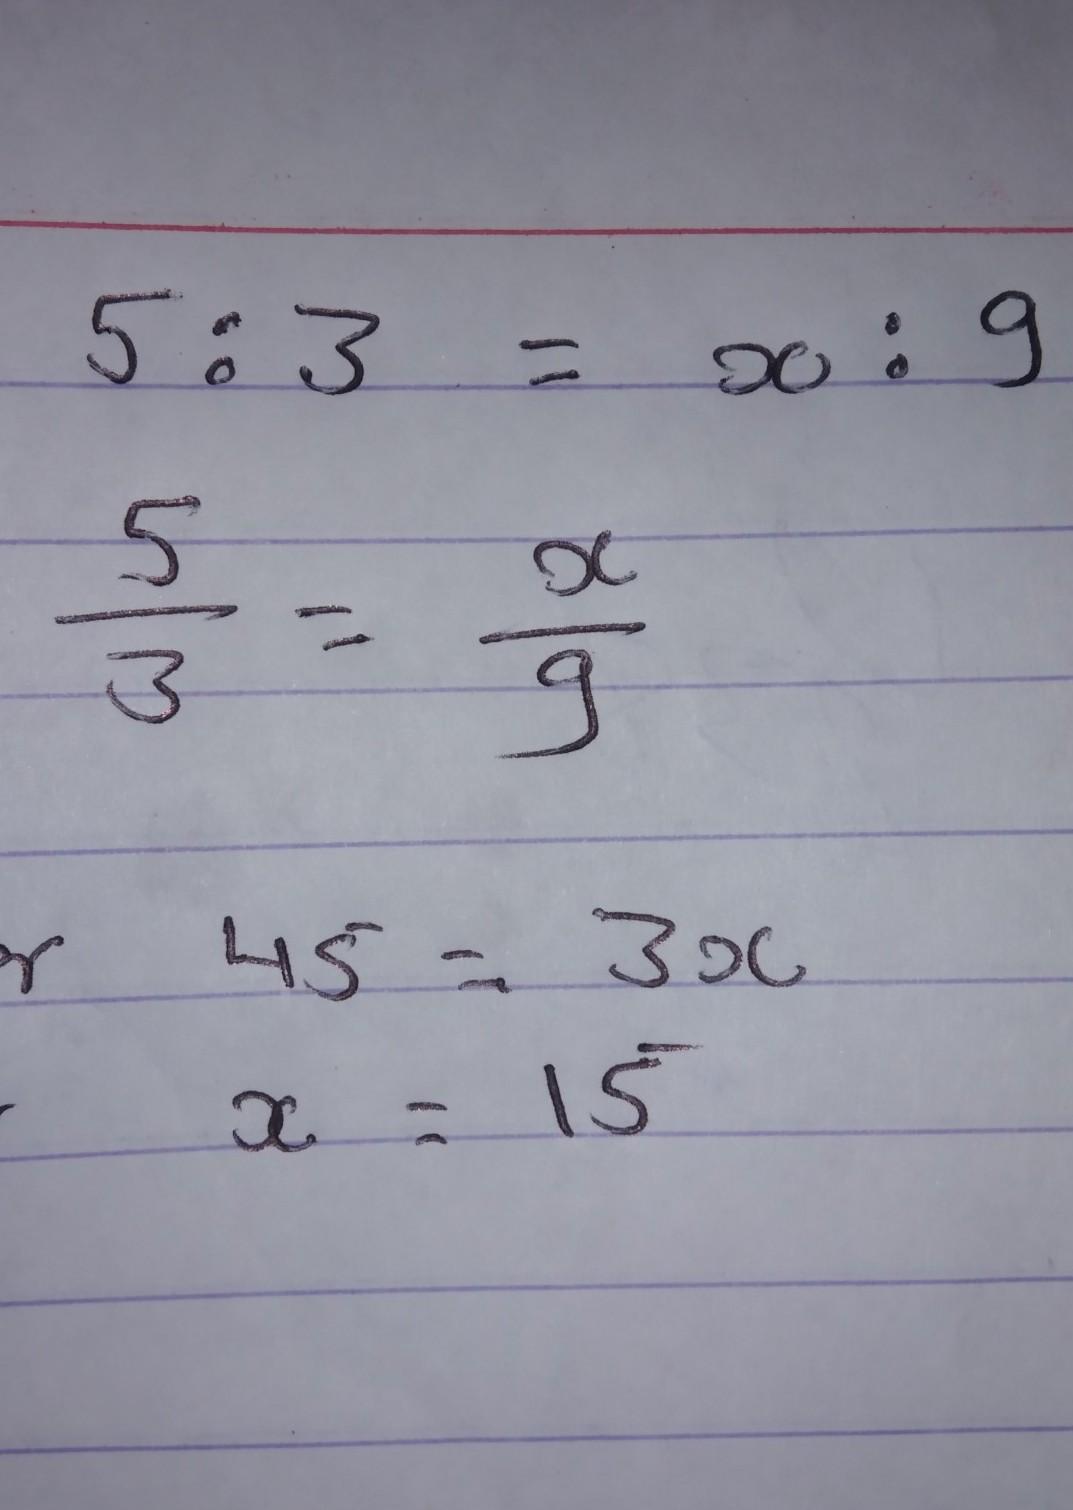 5 : 3 = x : 9
5/3 = x/9
or 45 = 3x
x = 15